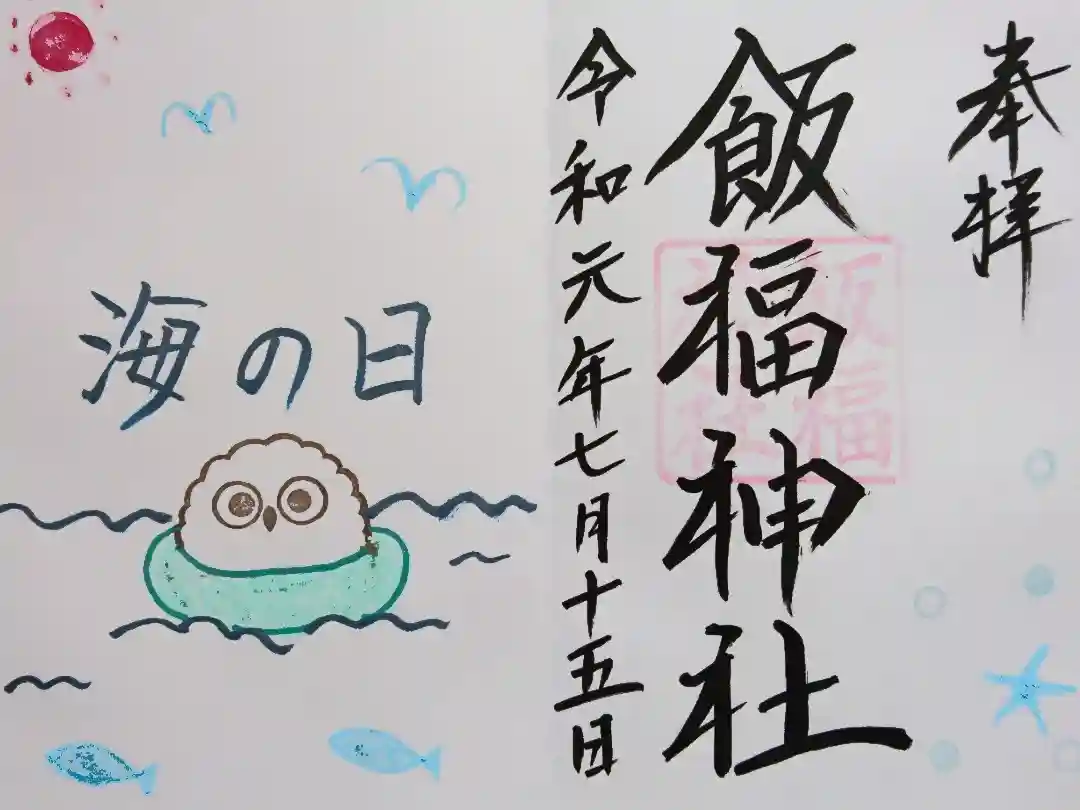 奉拝
飯福神社
令和元年七月十五日
海の日